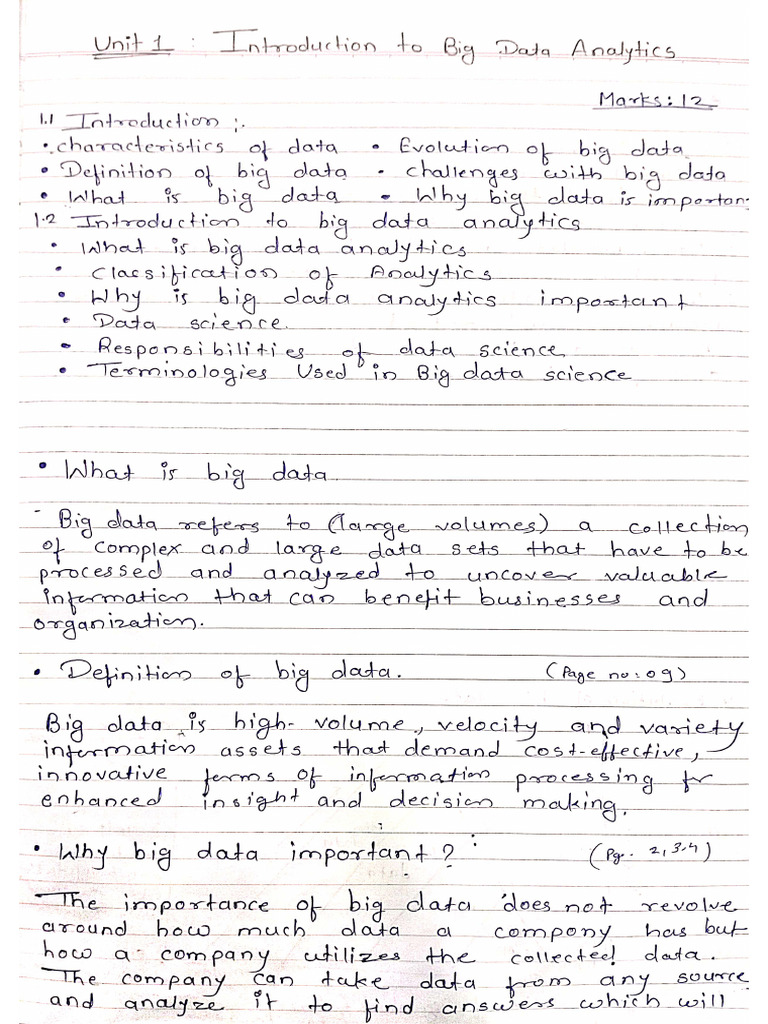 Unit 1 : Introduction to Big Data Analytics
Marks: 12
1.1 Introduction :.
• characteristics of data • Evolution of big data
• Definition of big data • challenges with big data
• What is big data • Why big data is importan
1.2 Introduction to big data analytics
• What is big data analytics
• Classification of Analytics
• Why is big data analytics important
• Data science
• Responsibilities of data science
• Terminologies Used in Big data science
• What is big data
- Big data refers to (large volumes) a collection
of complex and large data sets that have to be
processed and analyzed to uncover valuable
information that can benefit businesses and
organization.
• Definition of big data. (Page no: 09)
Big data is high-volume, velocity and variety
information assets that demand cost-effective,
innovative forms of information processing for
enhanced insight and decision making.
• Why big data important? (Pg.. 2,3,4)
The importance of big data does not revolve
around how much data a company has but
how a company utilizes the collected data.
The company can take data from any source
and analyze it to find answers which will